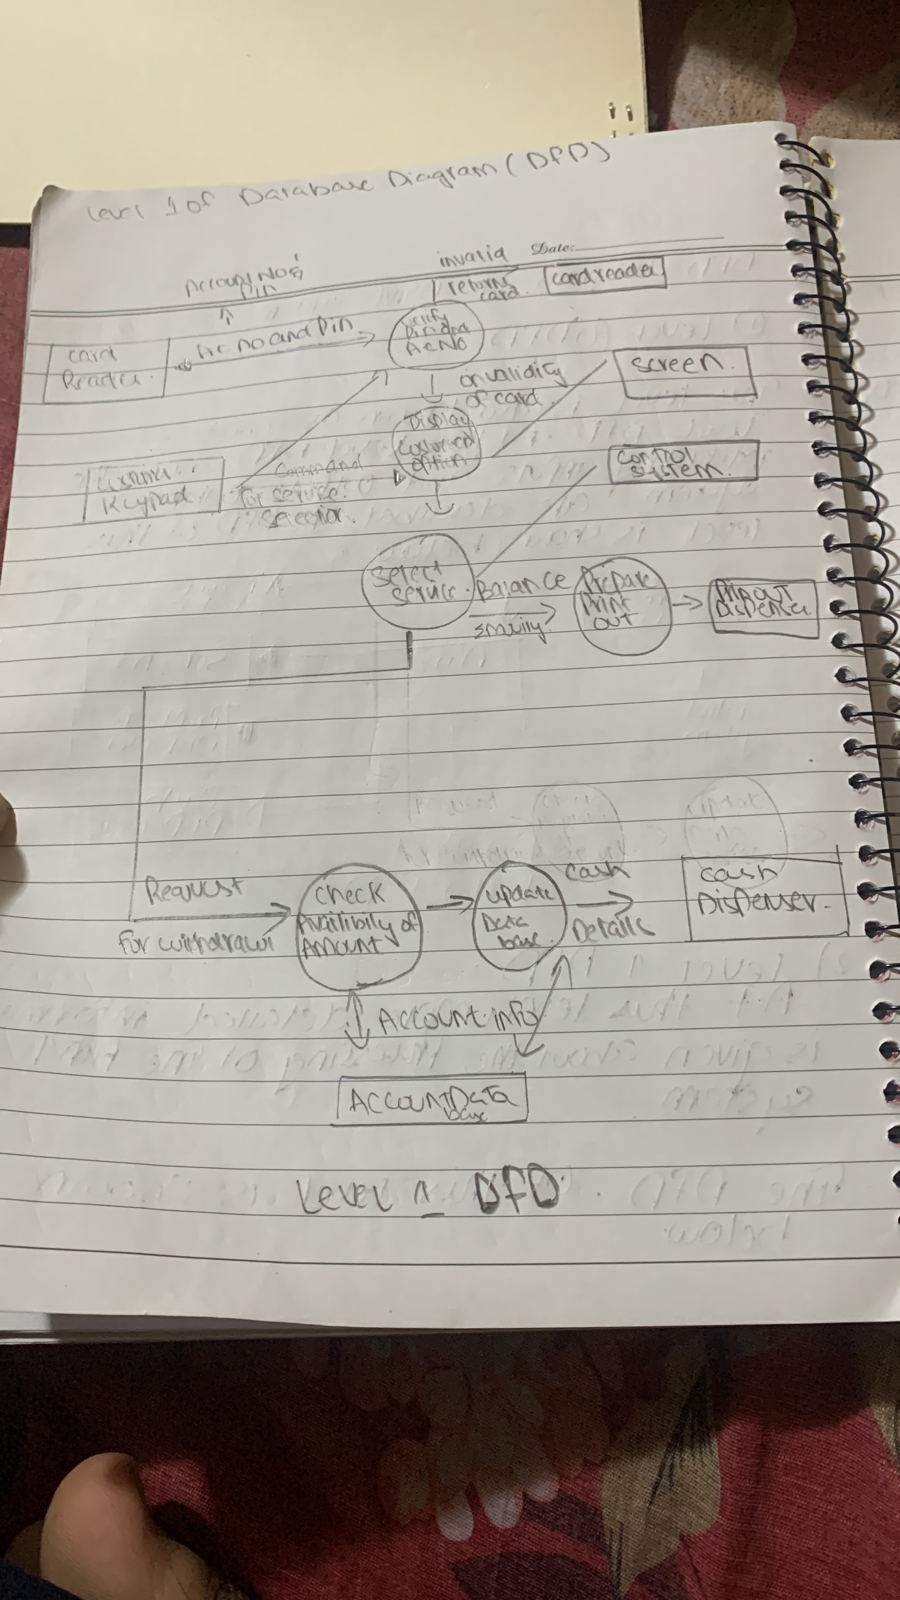 Level 1 of Database Diagram (DFD)
Date:
Account No &
Pin
invalid
return
card.
card reader
card
Reader
Ac no and Pin
verify
Pin and
Ac No
on validity
of card
screen
Display
customer
option
Customer
Keypad
Command
for service
selection
control
system
select
service
Balance
Prepare
Print
out
Dispenser
Request
For withdrawl
check
Availibily of
Amount
update
Data
base
cash
Details
cash
Dispenser.
Account info
Account Data
base
Level 1 DFD